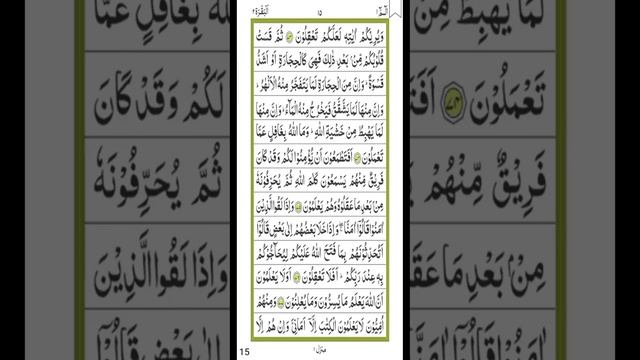 الٓمّٓ ١ ١٥ اَلْبَقَرَة ٢
وَيُرِيْكُمْ اٰيٰتِهٖ لَعَلَّكُمْ تَعْقِلُوْنَ ۝ ثُمَّ قَسَتْ
قُلُوْبُكُمْ مِّنْۢ بَعْدِ ذٰلِكَ فَهِيَ كَالْحِجَارَةِ اَوْ اَشَدُّ
قَسْوَةً ؕ وَاِنَّ مِنَ الْحِجَارَةِ لَمَا يَتَفَجَّرُ مِنْهُ الْاَنْهٰرُ ؕ
وَاِنَّ مِنْهَا لَمَا يَشَّقَّقُ فَيَخْرُجُ مِنْهُ الْمَآءُ ؕ وَاِنَّ مِنْهَا
لَمَا يَهْبِطُ مِنْ خَشْيَةِ اللّٰهِ ؕ وَمَا اللّٰهُ بِغَافِلٍ عَمَّا
تَعْمَلُوْنَ ۝ اَفَتَطْمَعُوْنَ اَنْ يُّؤْمِنُوْا لَكُمْ وَقَدْ كَانَ
فَرِيْقٌ مِّنْهُمْ يَسْمَعُوْنَ كَلٰمَ اللّٰهِ ثُمَّ يُحَرِّفُوْنَهٗ
مِنْۢ بَعْدِ مَا عَقَلُوْهُ وَهُمْ يَعْلَمُوْنَ ۝ وَاِذَا لَقُوا الَّذِيْنَ
اٰمَنُوْا قَالُوْٓا اٰمَنَّا ۖۚ وَاِذَا خَلَا بَعْضُهُمْ اِلٰى بَعْضٍ قَالُوْٓا
اَتُحَدِّثُوْنَهُمْ بِمَا فَتَحَ اللّٰهُ عَلَيْكُمْ لِيُحَآجُّوْكُمْ
بِهٖ عِنْدَ رَبِّكُمْ ؕ اَفَلَا تَعْقِلُوْنَ ۝ اَوَلَا يَعْلَمُوْنَ
اَنَّ اللّٰهَ يَعْلَمُ مَا يُسِرُّوْنَ وَمَا يُعْلِنُوْنَ ۝ وَمِنْهُمْ
اُمِّيُّوْنَ لَا يَعْلَمُوْنَ الْكِتٰبَ اِلَّآ اَمَانِيَّ وَاِنْ هُمْ اِلَّا
منزل ١
15